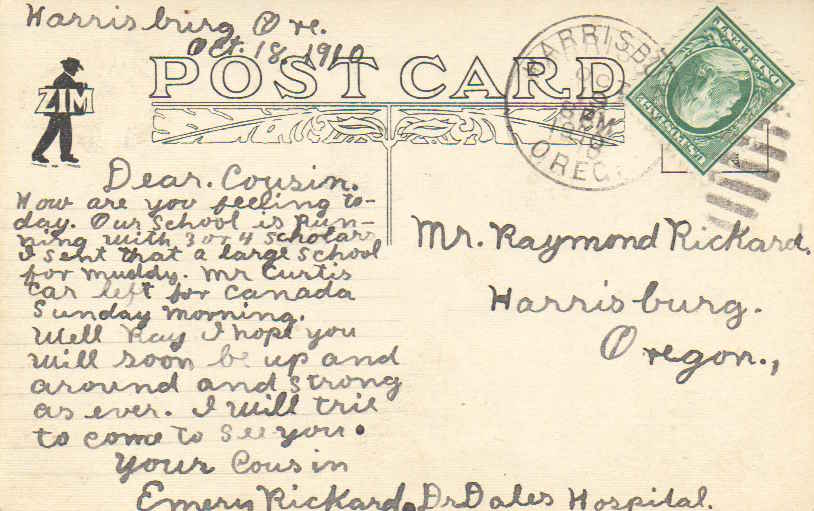 Harrisburg Ore.
Oct. 18, 1910
POST CARD
ZIM
HARRISBU
OCT
18
8 PM
1910
OREG.
Dear. Cousin.
How are you feeling to-
day. Our School is Run-
ning with 3 or 4 scholars
I sent that a large school
for muddy. Mr Curtis
Car left for Canada
Sunday morning.
Well Ray I hope you
will soon be up and
around and strong
as ever. I will trie
to come to see you.
Your Cousin
Emery Rickard. Dr Dales Hospital.
Mr. Raymond Rickard.
Harrisburg.
Oregon.,